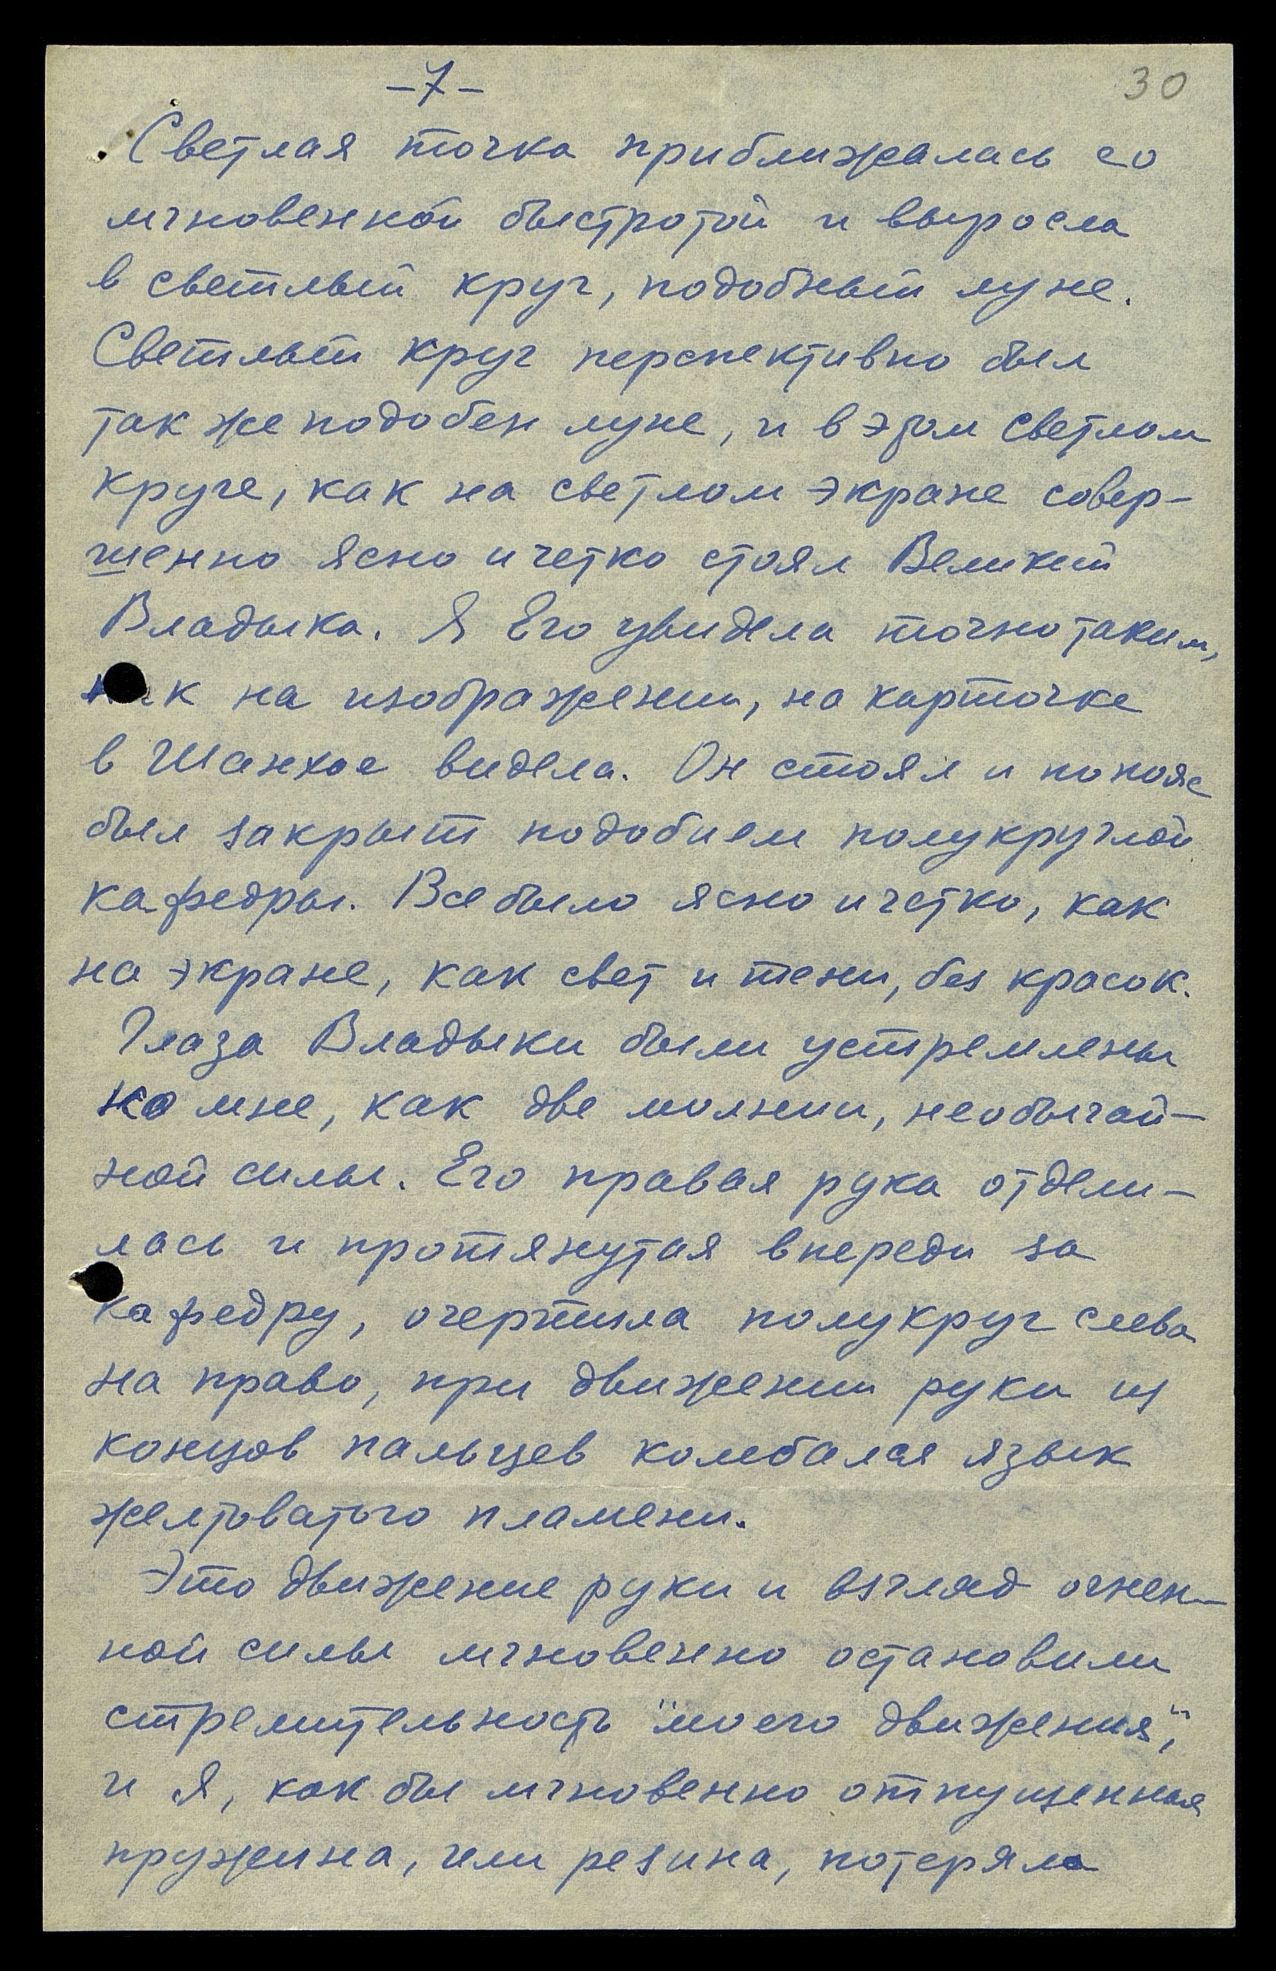 -7-
30
Светлая точка приближалась со
мгновенной быстротой и выросла
в светлый круг, подобный луне.
Светлый круг перспективно был
так же подобен луне, и в этом светлом
круге, как на светлом экране совер-
шенно ясно и четко стоял Великий
Владыка. Я Его увидела точно таким,
как на изображении, на карточке
в Шанхае видела. Он стоял и по пояс
был закрыт подобием полукруглой
кафедры. Все было ясно и четко, как
на экране, как свет и тени, без красок.
Глаза Владыки были устремлены
ко мне, как две молнии, необычай-
ной силы. Его правая рука отдели-
лась и протянутая впереди за
кафедру, очертила полукруг слева
на право, при движении руки из
концов пальцев колебался язык
желтоватого пламени.
Это движение руки и взгляд огнен-
ной силы мгновенно остановили
стремительность "моего движения",
и я, как бы мгновенно отпущенная
пружина, или резина, потеряла